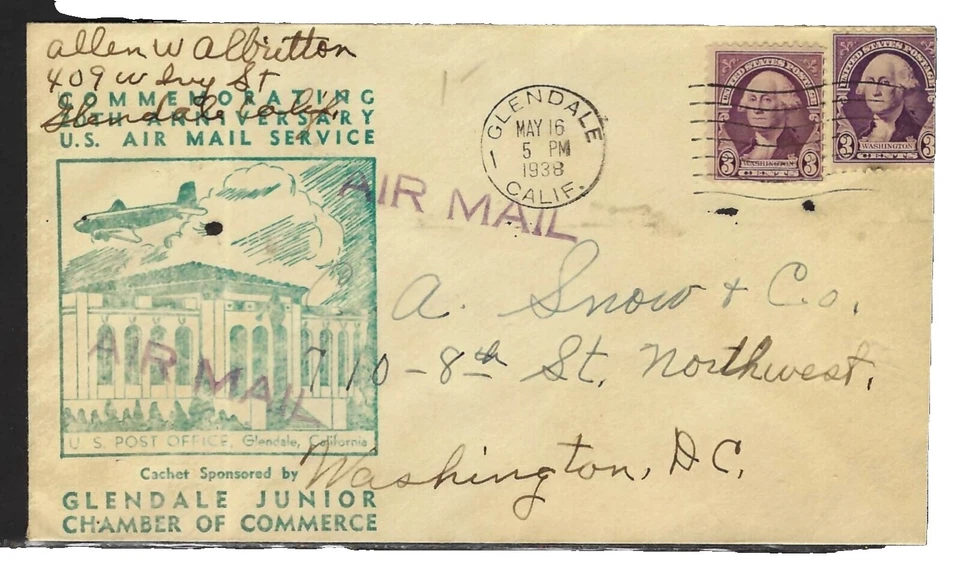 allen W Albritton
409 W Ivy St
Glendale Calif.
COMMEMORATING
ANNIVERSARY
U.S. AIR MAIL SERVICE
GLENDALE
MAY 16
5 PM
1938
CALIF.
1
UNITED STATES POSTAGE
WASHINGTON
3 CENTS 3
UNITED STATES POSTAGE
WASHINGTON
3 CENTS 3
AIR MAIL
A. Snow & Co.
710-8th St. Northwest.
Washington, D.C.
AIR MAIL
U. S. POST OFFICE, Glendale, California
Cachet Sponsored by
GLENDALE JUNIOR
CHAMBER OF COMMERCE